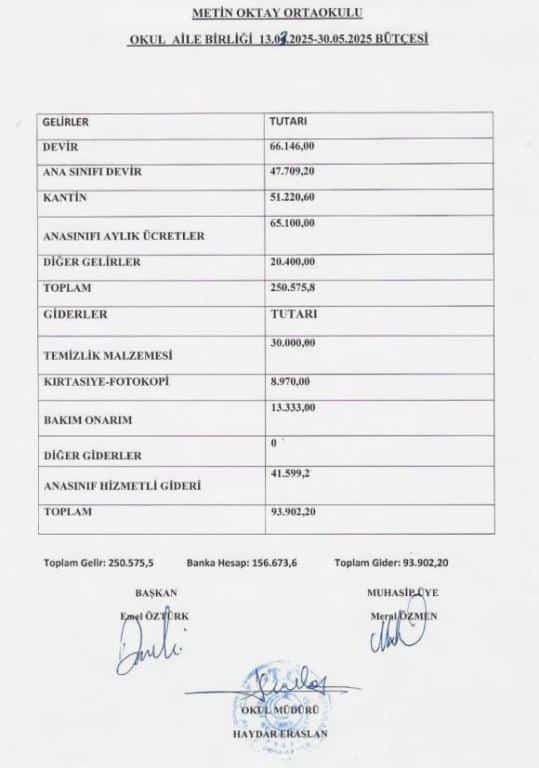 METİN OKTAY ORTAOKULU
OKUL AİLE BİRLİĞİ 13.03.2025-30.05.2025 BÜTÇESİ
GELİRLER TUTARI
DEVİR 66.146,00
ANA SINIFI DEVİR 47.709,20
KANTİN 51.220,60
ANASINIFI AYLIK ÜCRETLER 65.100,00
DİĞER GELİRLER 20.400,00
TOPLAM 250.575,8
GİDERLER TUTARI
TEMİZLİK MALZEMESİ 30.000,00
KIRTASIYE-FOTOKOPİ 8.970,00
BAKIM ONARIM 13.333,00
DİĞER GİDERLER 0
ANASINIF HİZMETLİ GİDERİ 41.599,2
TOPLAM 93.902,20
Toplam Gelir: 250.575,5 Banka Hesap: 156.673,6 Toplam Gider: 93.902,20
BAŞKAN MUHASİP ÜYE
Emel ÖZTÜRK Meral ÖZMEN
OKUL MÜDÜRÜ
HAYDAR ERASLAN